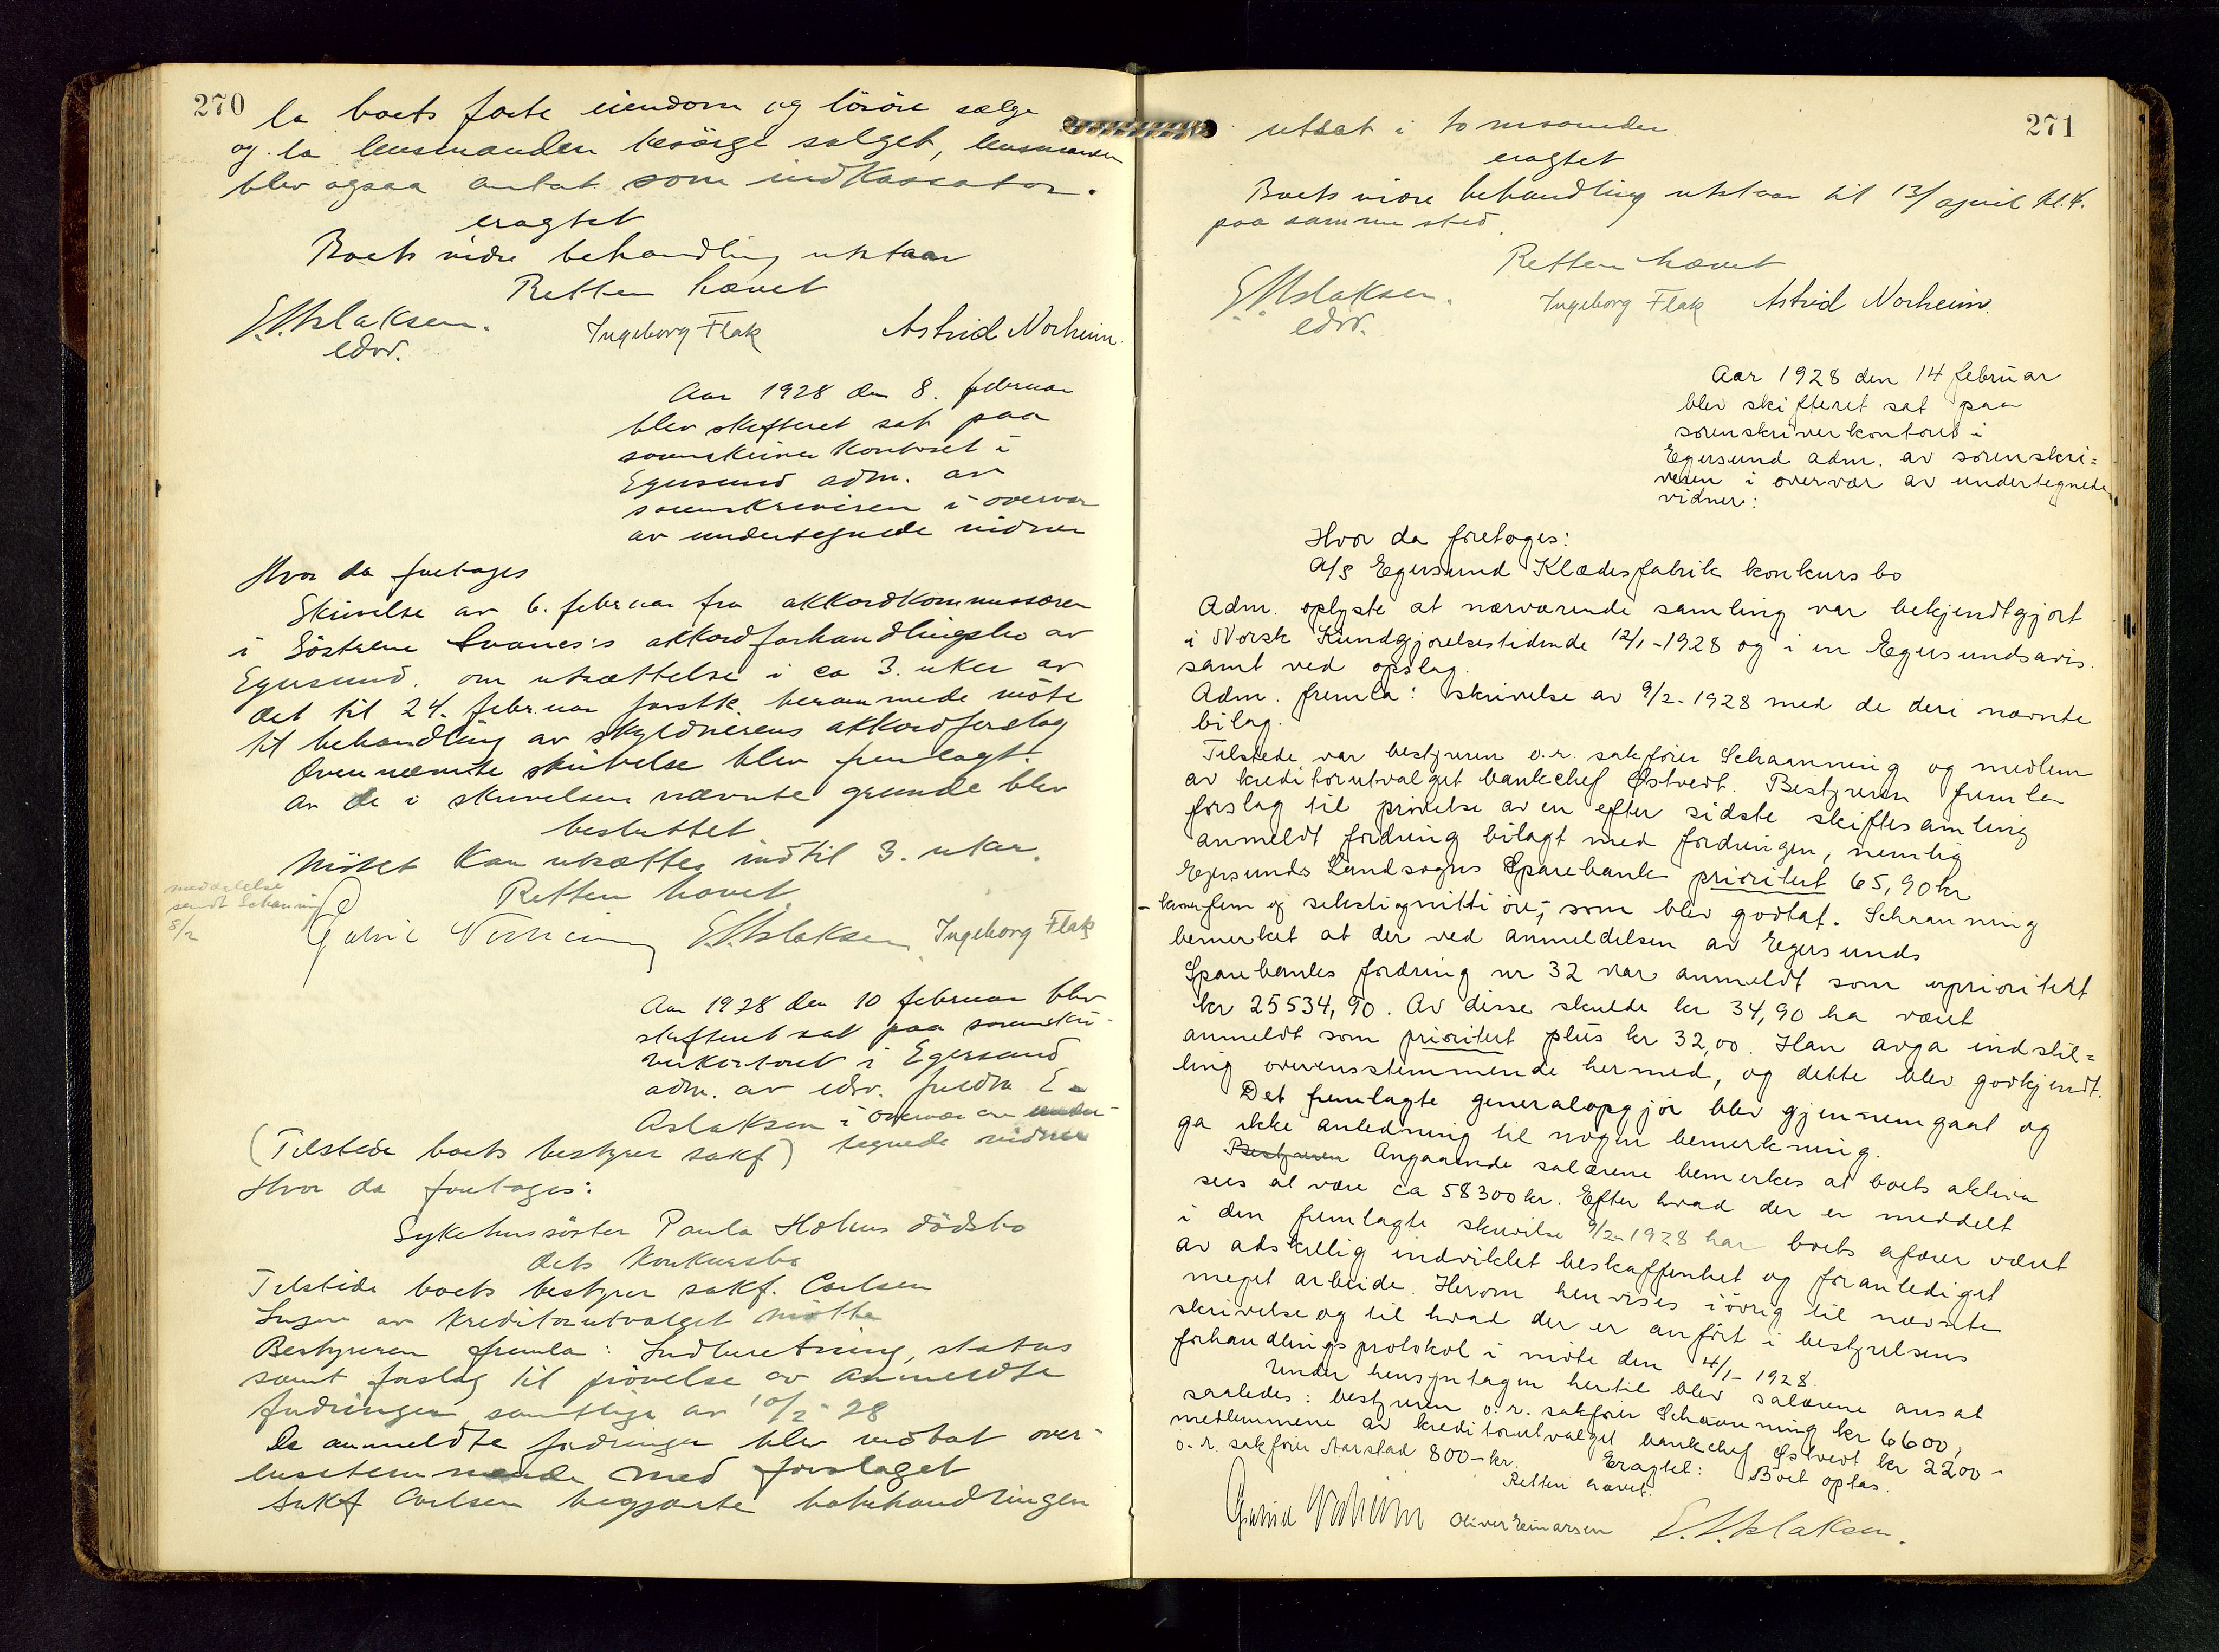 270
la boets faste eiendom og lösöre sælge
og la lensmanden besörge salget, lensmanden
blev ogsaa antat som indkassator.
eragtet
Boets vidre behandling utstaar
Retten hævet
E. Aslaksen.
edsv.
Ingeborg Flak
Astrid Norheim.
Aar 1928 den 8. februar
blev skifteret sat paa
sorenskriver kontoret i
Egersund adm. av
sorenskriveren i overvær
av undertegnede vidner
Hvor da foretages
Skrivelse av 6. februar fra akkordkommissæren
i Söstrene Svanes's akkordforhandlingsbo av
Egersund. om utsættelse i ca 3. uker av
det til 24. februar förstk. berammede möte
til behandling av skyldnerens akkordforslag
Ovennævnte skrivelse blev fremlagt.
Av de i skrivelsen nævnte grunde blev
besluttet
Mötet kan utsættes indtil 3. uker.
Retten hævet
meddelelse
sendt Schanning
8/2
Gabriel Norheim E. Aslaksen Ingeborg Flak
Aar 1928 den 10 februar blev
skifteret sat paa sorenskri-
verkontoret i Egersund
adm. av edsv. fuldm E.
Aslaksen i overvær av under-
tegnede vidner
(Tilstede boets bestyrer sakf)
Hvor da foretages:
Sykehussöster Paula Holmes dödsbo
dets konkursbo
Tilstede boets bestyrer sakf. Carlsen
Ingen av kreditorutvalget mötte
Bestyreren fremla: Indberetning, status
samt forslag til prövelse av anmeldte
fordringer, samtlige av 10/2-28
De anmeldte fordringer blev vedtat over-
ensstemmende med forslaget
Sakf Carlsen begjærte bobehandlingen
271
utsat i to maaneder.
eragtet
Boets vidre behandling utstaar til 13/ april kl. 4.
paa samme sted.
Retten hævet
E. Aslaksen.
edsv.
Ingeborg Flak Astrid Norheim.
Aar 1928 den 14 februar
blev skifteret sat paa
sorenskriverkontoret i
Egersund adm. av sorenskri=
veren i overvær av undertegnede
vidner:
Hvor da foretages:
A/S Egersund Klædesfabrik konkursbo
Adm. oplyste at nærværende samling var bekjendtgjort
i Norsk Kundgjørelsestidende 12/1-1928 og i en Egersundsavis.
samt ved opslag.
Adm. fremla: skrivelse av 9/2-1928 med de deri nævnte
bilag.
Tilstede var bestyreren o.r. sakfører Schaanning og medlem
av kreditorutvalget bankchef Østvedt. Bestyreren fremla
forslag til prøvelse av en efter sidste skiftesamling
anmeldt fordring bilagt med fordringen, nemlig
Egersunds Landsogns Sparebank prioritert 65,90 kr
- kroner fem og sekstiognitti øre -, som blev godtat. Schaanning
bemerket at der ved anmeldelsen av Egersunds
Sparebanks fordring nr 32 var anmeldt som uprioritert
kr 25534,90. Av disse skulde kr 34,90 ha været
anmeldt som prioritert plus kr 32,00. Han avga indstil=
ling overensstemmende hermed, og dette blev godkjendt.
Det fremlagte generalopgjør blev gjennemgaat og
ga ikke anledning til nogen bemerkning.
Bestyreren Angaaende salærene bemerkes at boets aktiva
sees at være ca 58300 kr. Efter hvad der er meddelt
i den fremlagte skrivelse 9/2-1928 har boets afærer været
av adskillig indviklet beskaffenhet og foranlediget
meget arbeide. Herom henvises iøvrig til nævnte
skrivelse og til hvad der er anført i bestyrelsens
forhandlingsprotokol i møte den 4/1-1928.
Under hensyntagen hertil blev salærene ansat
saaledes: bestyreren o.r. sakfører Schaanning kr 6600,
medlemmene av kreditorutvalget bankchef Østvedt kr 2200-
o.r. sakfører Aarstad 800- kr. Eragtet: Boet optas.
Retten hævet.
Gabriel Norheim Oliver Einarsen E. Aslaksen.